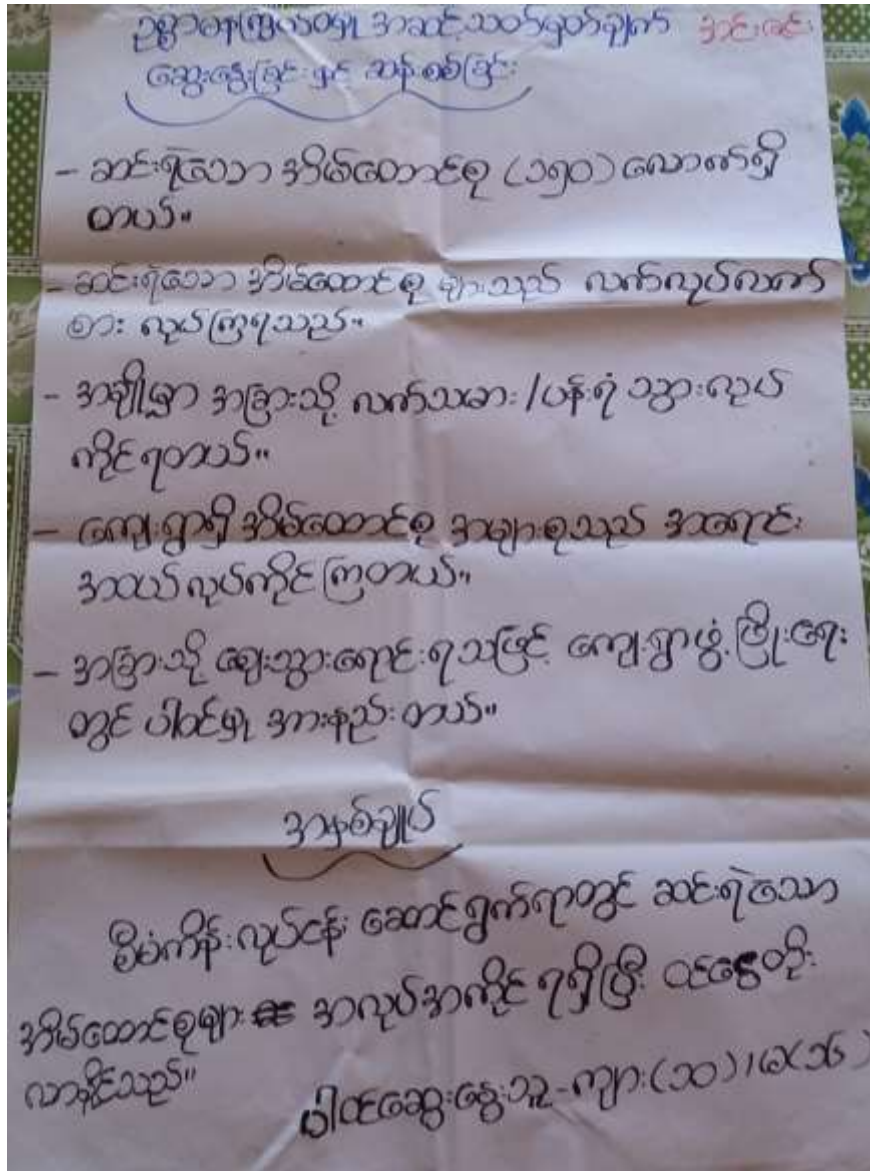 ဥစ္စာဓနကြွယ်ဝမှု အဆင့်သတ်မှတ်ချက် အင်းခင်း
ဆွေးနွေးခြင်း နှင့် ဆန်းစစ်ခြင်း
- ဆင်းရဲသော အိမ်ထောင်စု (၁၅၀) လောက်ရှိ
တယ်။
- ဆင်းရဲသော အိမ်ထောင်စု များသည် လက်လုပ်လက်
စား လုပ်ကြရသည်။
- အချို့မှာ အခြားသို့ လက်သမား/ပန်းရံ သွားလုပ်
ကိုင်ရတယ်။
- ကျေးရွာရှိ အိမ်ထောင်စု အများစုသည် အရောင်း
အဝယ် လုပ်ကိုင်ကြတယ်။
- အခြားသို့ ဈေးသွားရောင်းရသဖြင့် ကျေးရွာဖွံ့ဖြိုးရေး
တွင် ပါဝင်မှု အားနည်းတယ်။
အနှစ်ချုပ်
စီမံကိန်းလုပ်ငန်း ဆောင်ရွက်ရာတွင် ဆင်းရဲသော
အိမ်ထောင်စုများ အလုပ်အကိုင် ရရှိပြီး ဝင်ငွေတိုး
လာနိုင်သည်။
ပါဝင်ဆွေးနွေးသူ-ကျား(၁၀)၊မ(၁၆)